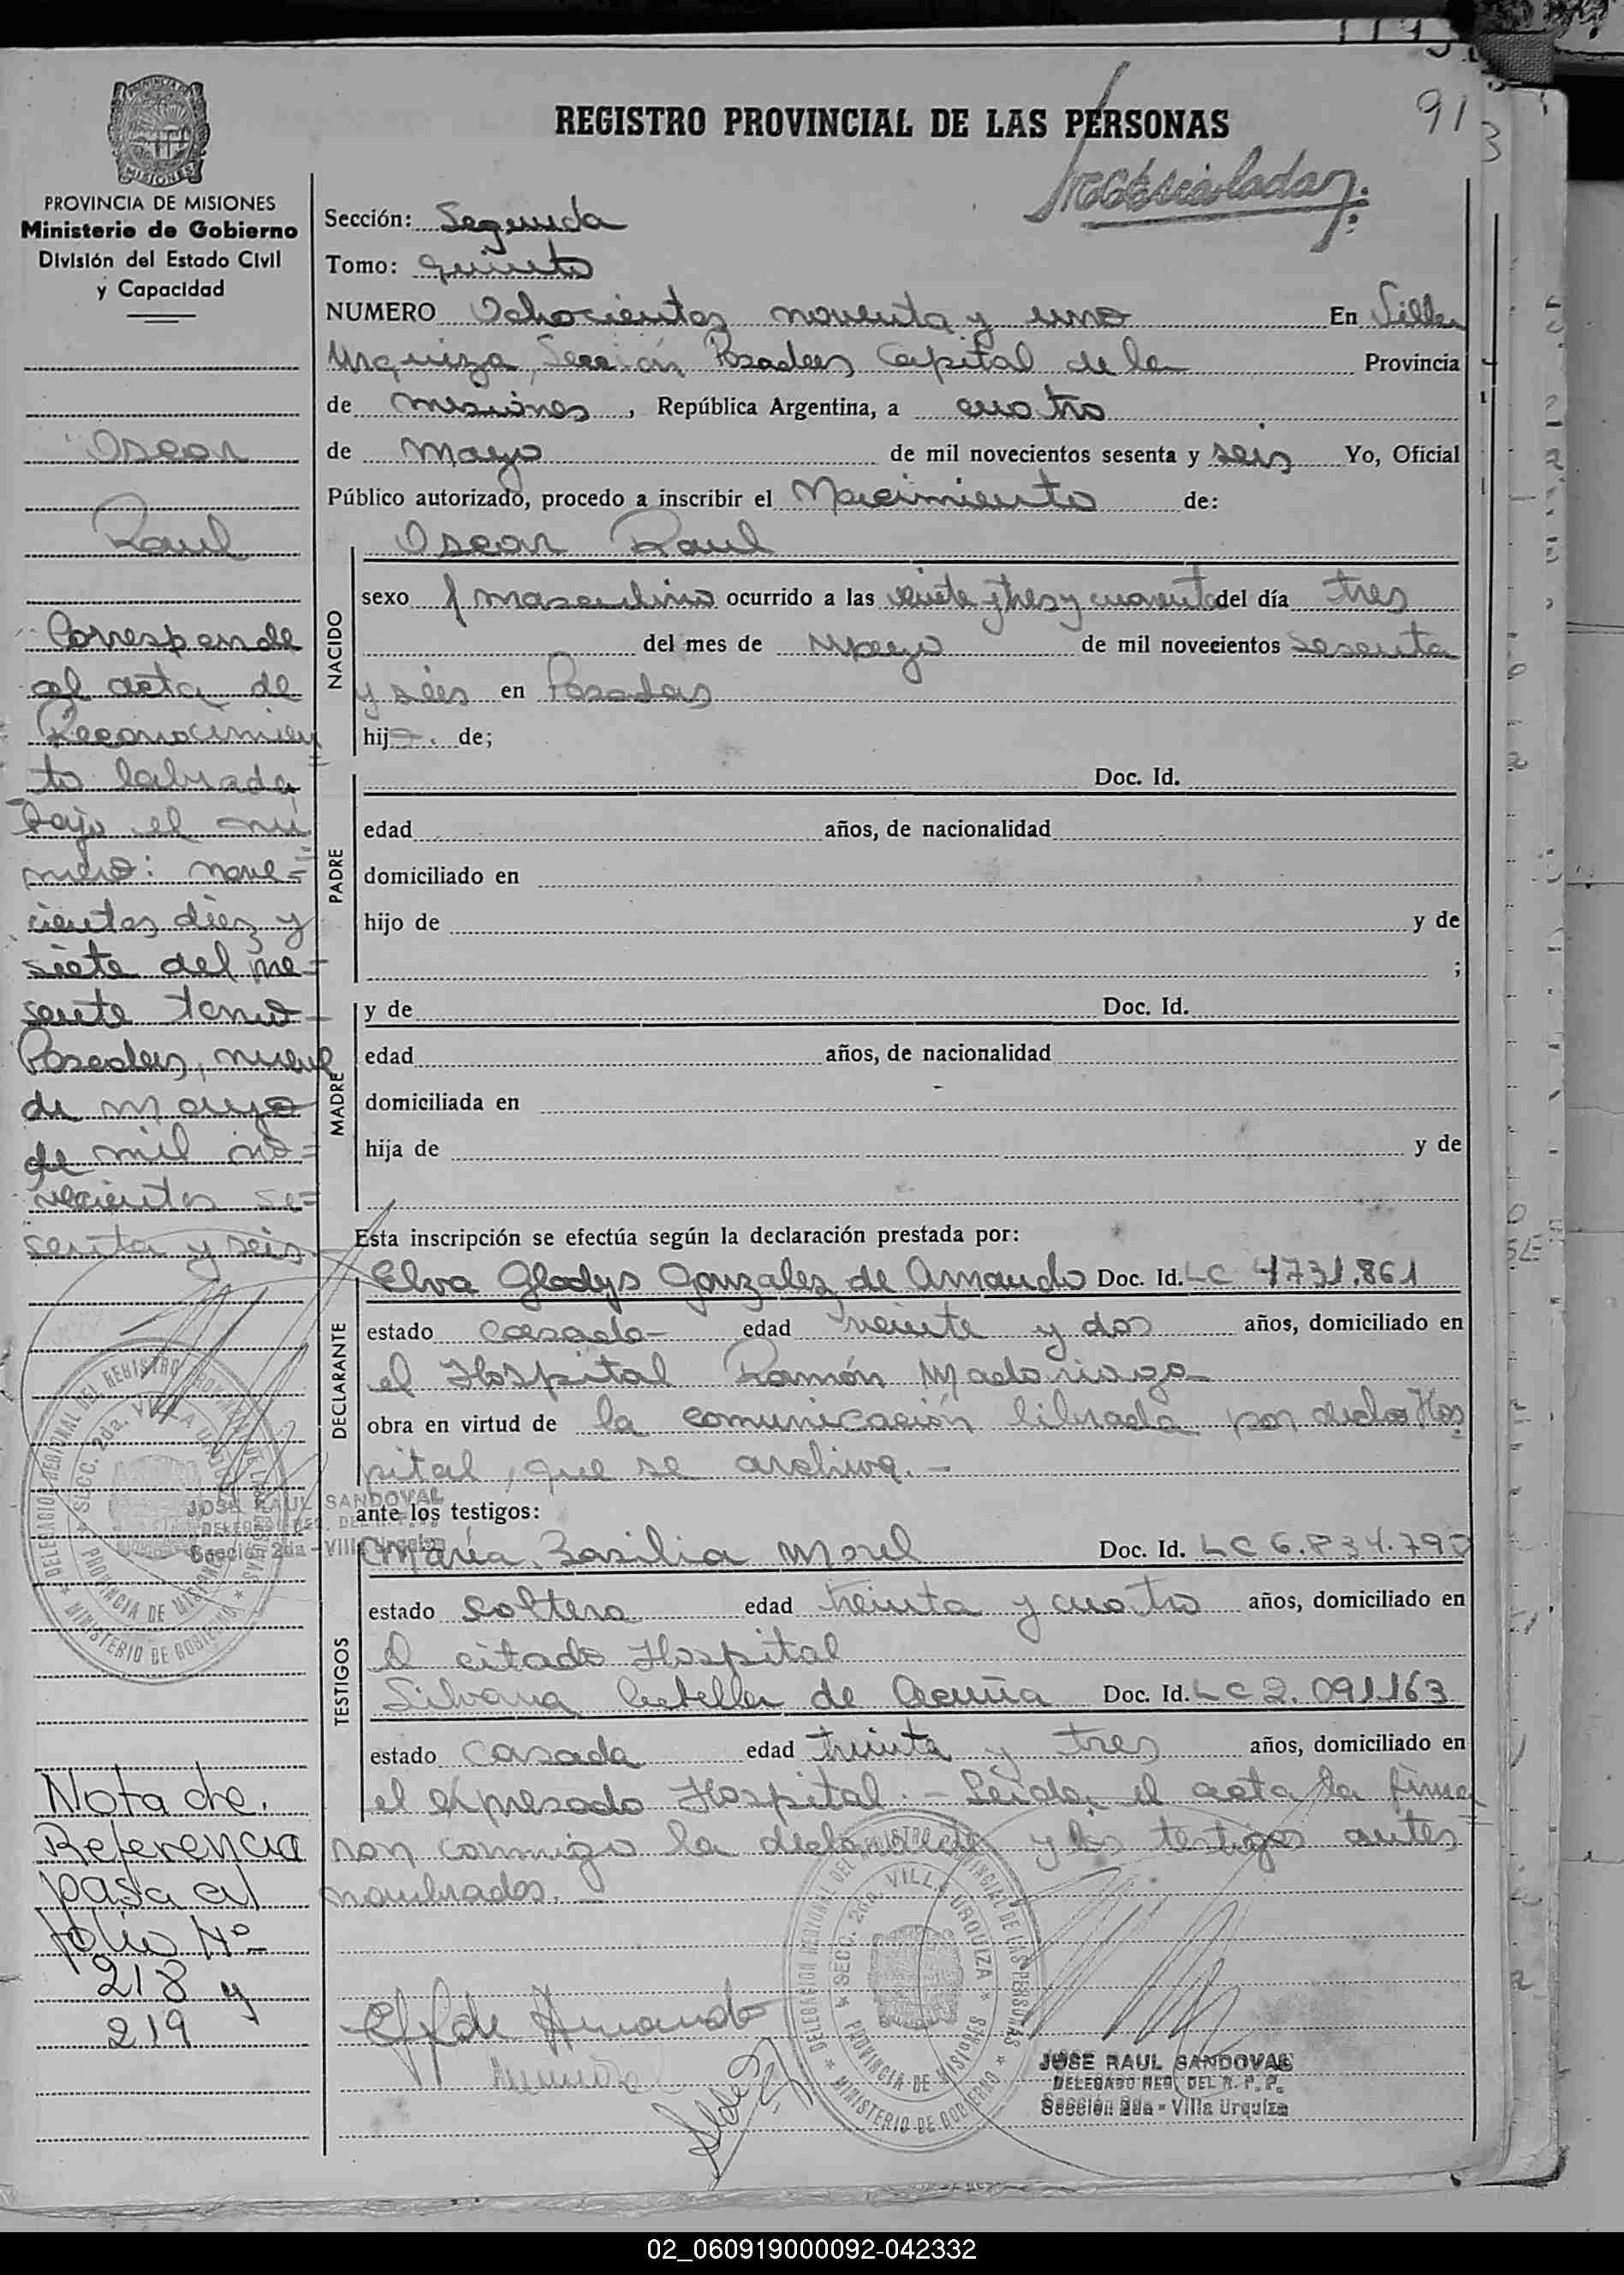 91
3
REGISTRO PROVINCIAL DE LAS PERSONAS
MISIONES
PROVINCIA DE MISIONES
Ministerio de Gobierno
División del Estado Civil
y Capacidad
Sección: Segunda
Tomo: quinto
NUMERO Ochocientos noventa y uno En Villa
Urquiza, Sección Posadas Capital de la Provincia
de misiones, República Argentina, a cuatro
de Mayo de mil novecientos sesenta y seis Yo, Oficial
Público autorizado, procedo a inscribir el Nacimiento de:
Oscar Raul
NACIDO
sexo masculino ocurrido a las veinte y tres y cuarenta del día tres
del mes de Mayo de mil novecientos sesenta
y séis en Posadas
hijo de;
PADRE
Doc. Id.
edad años, de nacionalidad
domiciliado en
hijo de y de
;
MADRE
y de Doc. Id.
edad años, de nacionalidad
domiciliada en
hija de y de
Esta inscripción se efectúa según la declaración prestada por:
DECLARANTE
Elva Gladys Gonzalez de Armando Doc. Id. LC 4731.861
estado casada- edad veinte y dos años, domiciliado en
el Hospital Ramón Madariaga
obra en virtud de la comunicación librada por dicho Hos
pital, que se archiva.-
ante los testigos:
TESTIGOS
María Basilia Morel Doc. Id. LC 6.834.790
estado soltera edad treinta y cuatro años, domiciliado en
El citado Hospital
Silvana de Acuña Doc. Id. LC 2.091.163
estado Casada edad treinta y tres años, domiciliado en
el expresado Hospital.- Leida el acta la firma
ron conmigo la declarante y los testigos antes
nombrados.-
Oscar
Raul
Corresponde
al acta de
Reconocimien
to labrada
bajo el nú
mero: nove=
cientos diez y
siete del pre=
sente tomo
Posadas, nueve
de mayo
de mil no=
vecientos se=
senta y seis
DELEGACION REGIONAL DEL REGISTRO PROVINCIAL DE LAS PERSONAS
SECC. 2da. VILLA URQUIZA
PROVINCIA DE MISIONES
MINISTERIO DE GOBIERNO
JOSE RAUL SANDOVAL
DELEGADO REG. DEL R. P. P.
Sección 2da - Villa Urquiza
Nota de
Referencia
pasa al
folio Nº
218 y
219
E G de Armando
DELEGACION REGIONAL DEL REGISTRO PROVINCIAL DE LAS PERSONAS
SECC. 2da. VILLA URQUIZA
PROVINCIA DE MISIONES
MINISTERIO DE GOBIERNO
JOSE RAUL SANDOVAL
DELEGADO REG. DEL R. P. P.
Sección 2da - Villa Urquiza
02_060919000092-042332